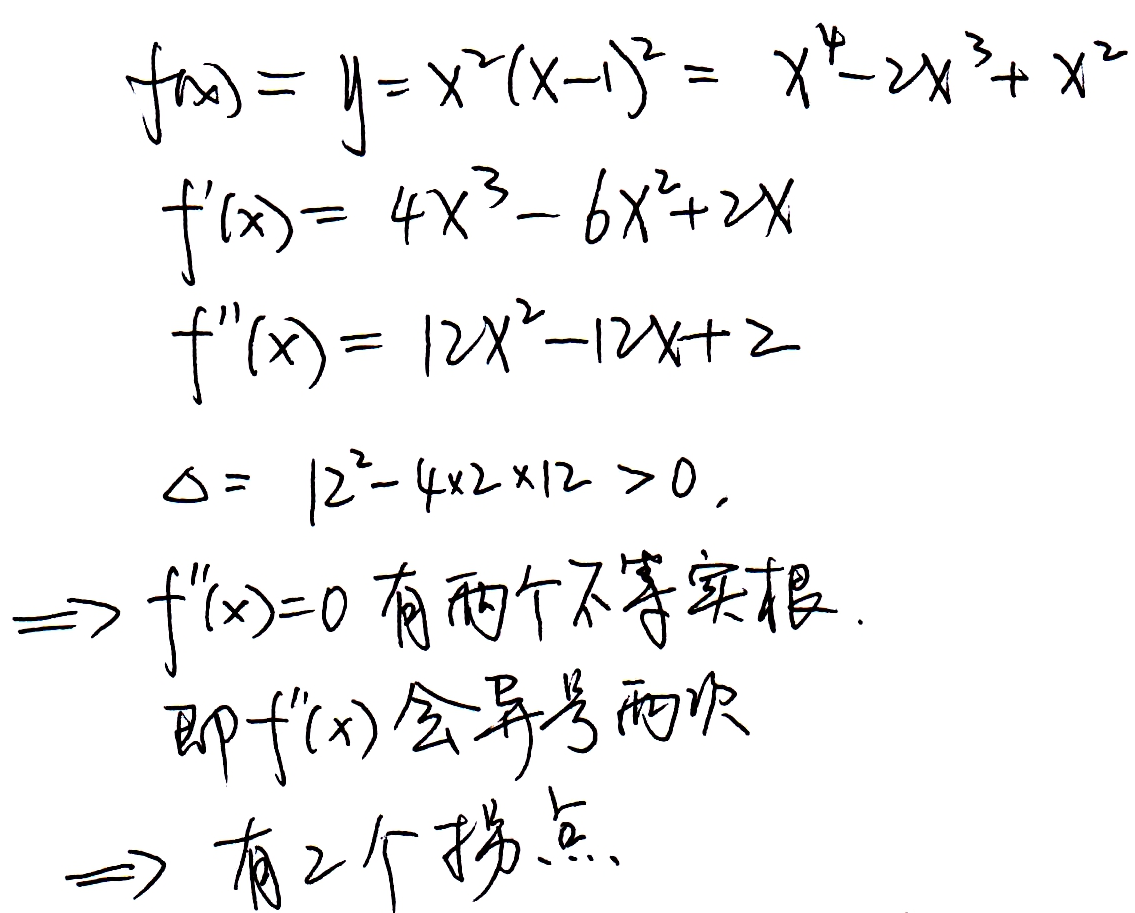 f(x) = y = x²(x-1)² = x⁴-2x³+x²
f'(x) = 4x³-6x²+2x
f''(x) = 12x²-12x+2
△ = 12²-4×2×12 >0,
⇒ f''(x)=0 有两个不等实根.
即f''(x) 会异号两次
⇒ 有2个拐点.